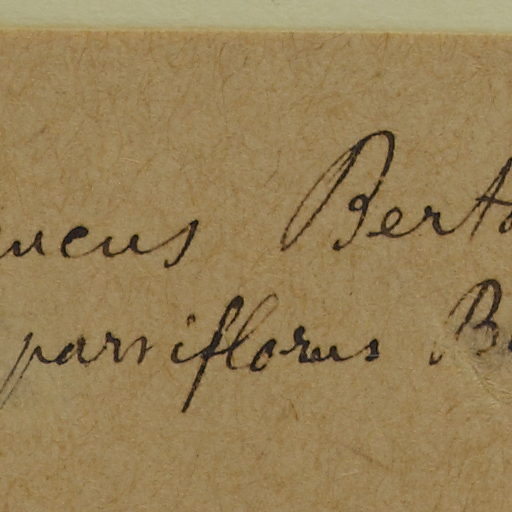 eucus Berto
parviflorus B